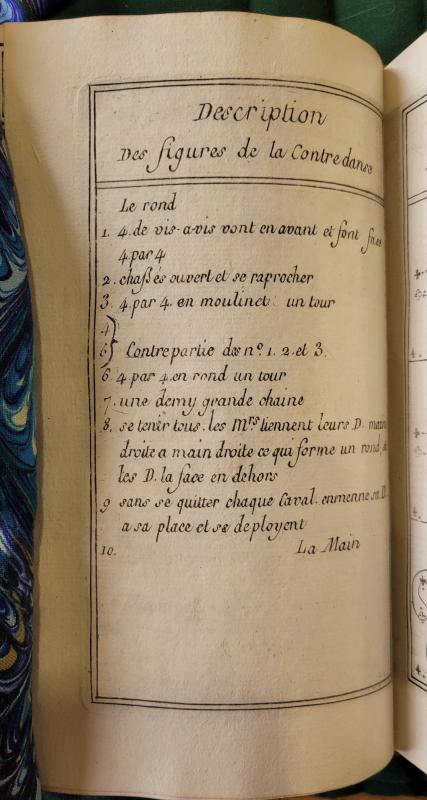 Description
Des figures de la Contredanse
Le rond
1. 4. de vis-a-vis vont en avant et font
4 par 4
2. chaßés ouvert et se raprocher
3. 4. par 4. en moulinet un tour
4
5 Contrepartie des nº. 1. 2. et 3.
6. 4. par 4. en rond un tour
7. une demy grande chaine
8. se tenir tous. les Mrs tiennent leurs D. main
droite a main droite ce qui forme un rond
les D. la face en dehors
9 sans se quitter chaque Caval. enmenne sa D.
a sa place et se deployent
10. La Main